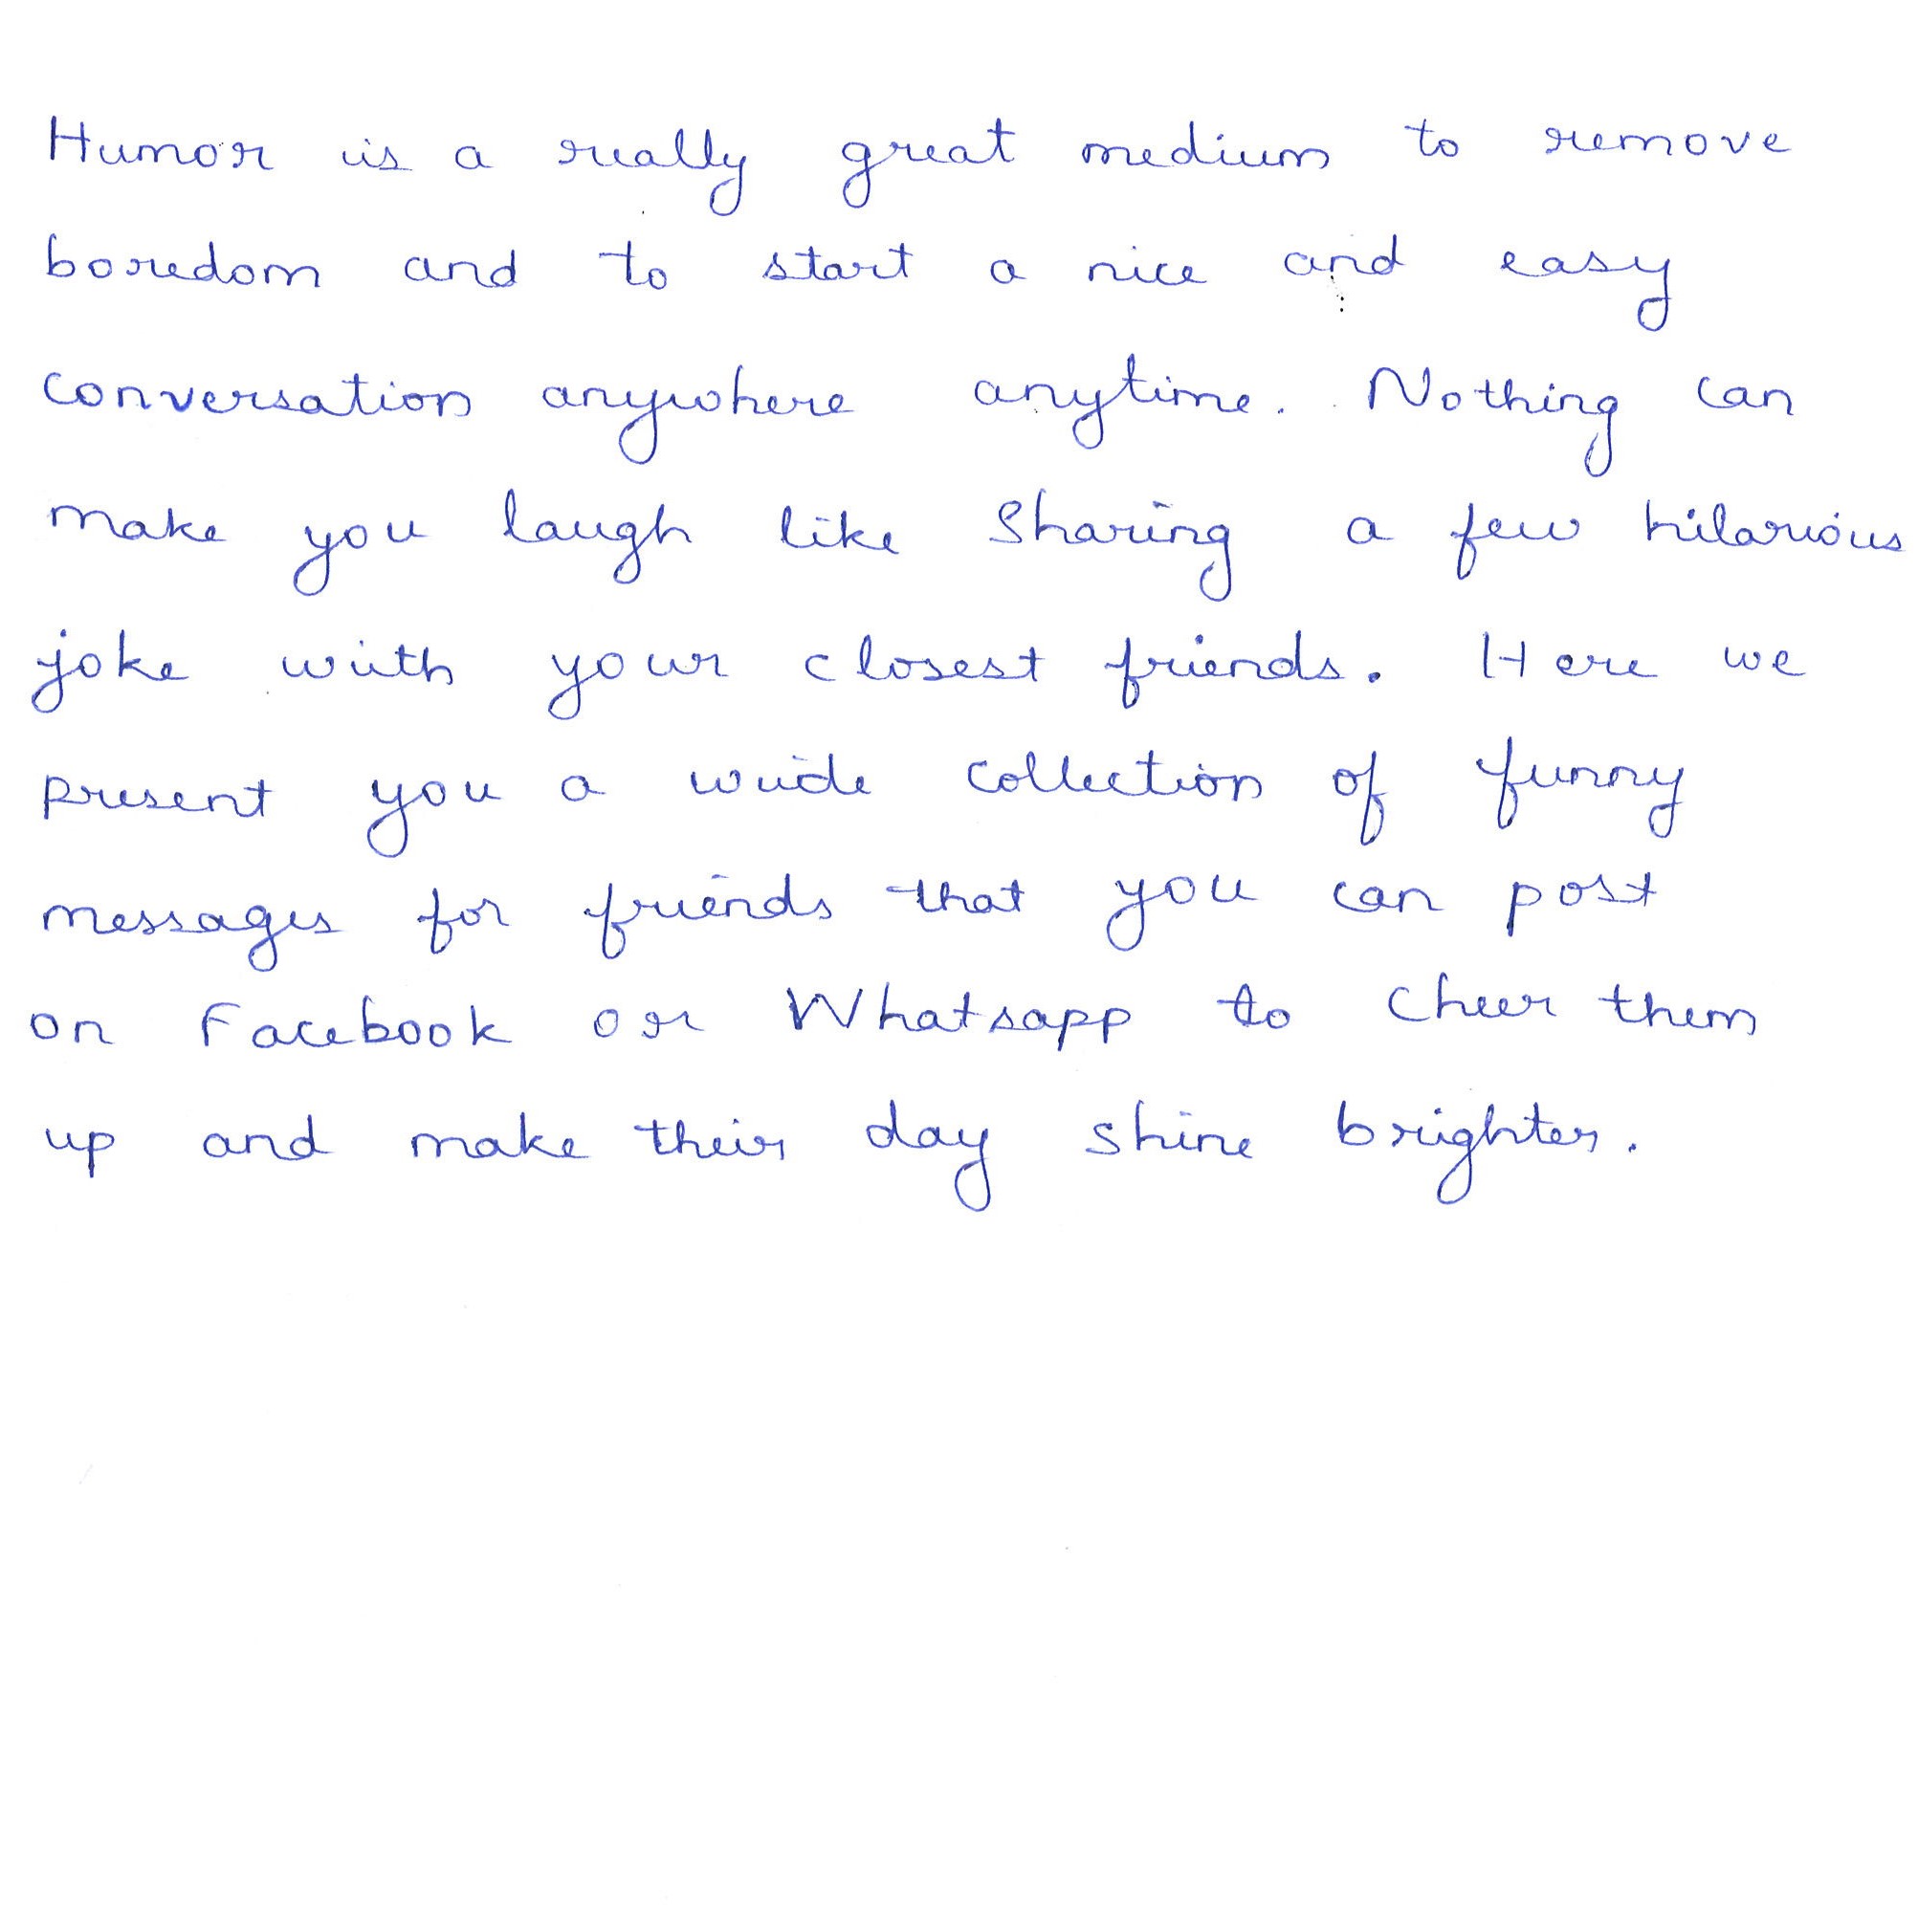 Humor is a really great medium to remove
boredom and to start a nice and easy
conversation anywhere anytime. Nothing can
make you laugh like Sharing a few hilarious
joke with your closest friends. Here we
present you a wide collection of funny
messages for friends that you can post
on Facebook or Whatsapp to Cheer them
up and make their day shine brighter.